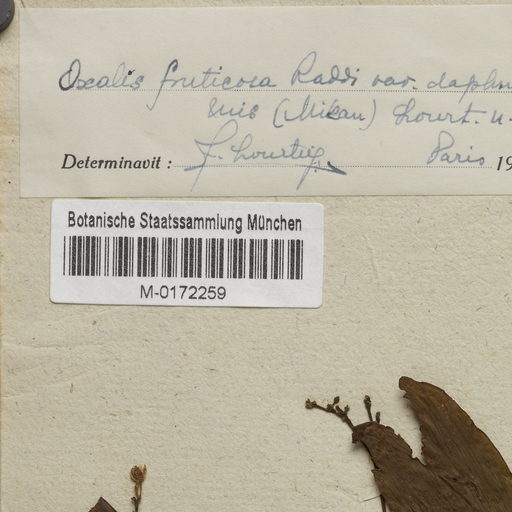 Oxalis fruticosa Raddi var. daphn
(Mikan) Lourt. n.
Determinavit : Paris 19
Botanische Staatssammlung München
M-0172259